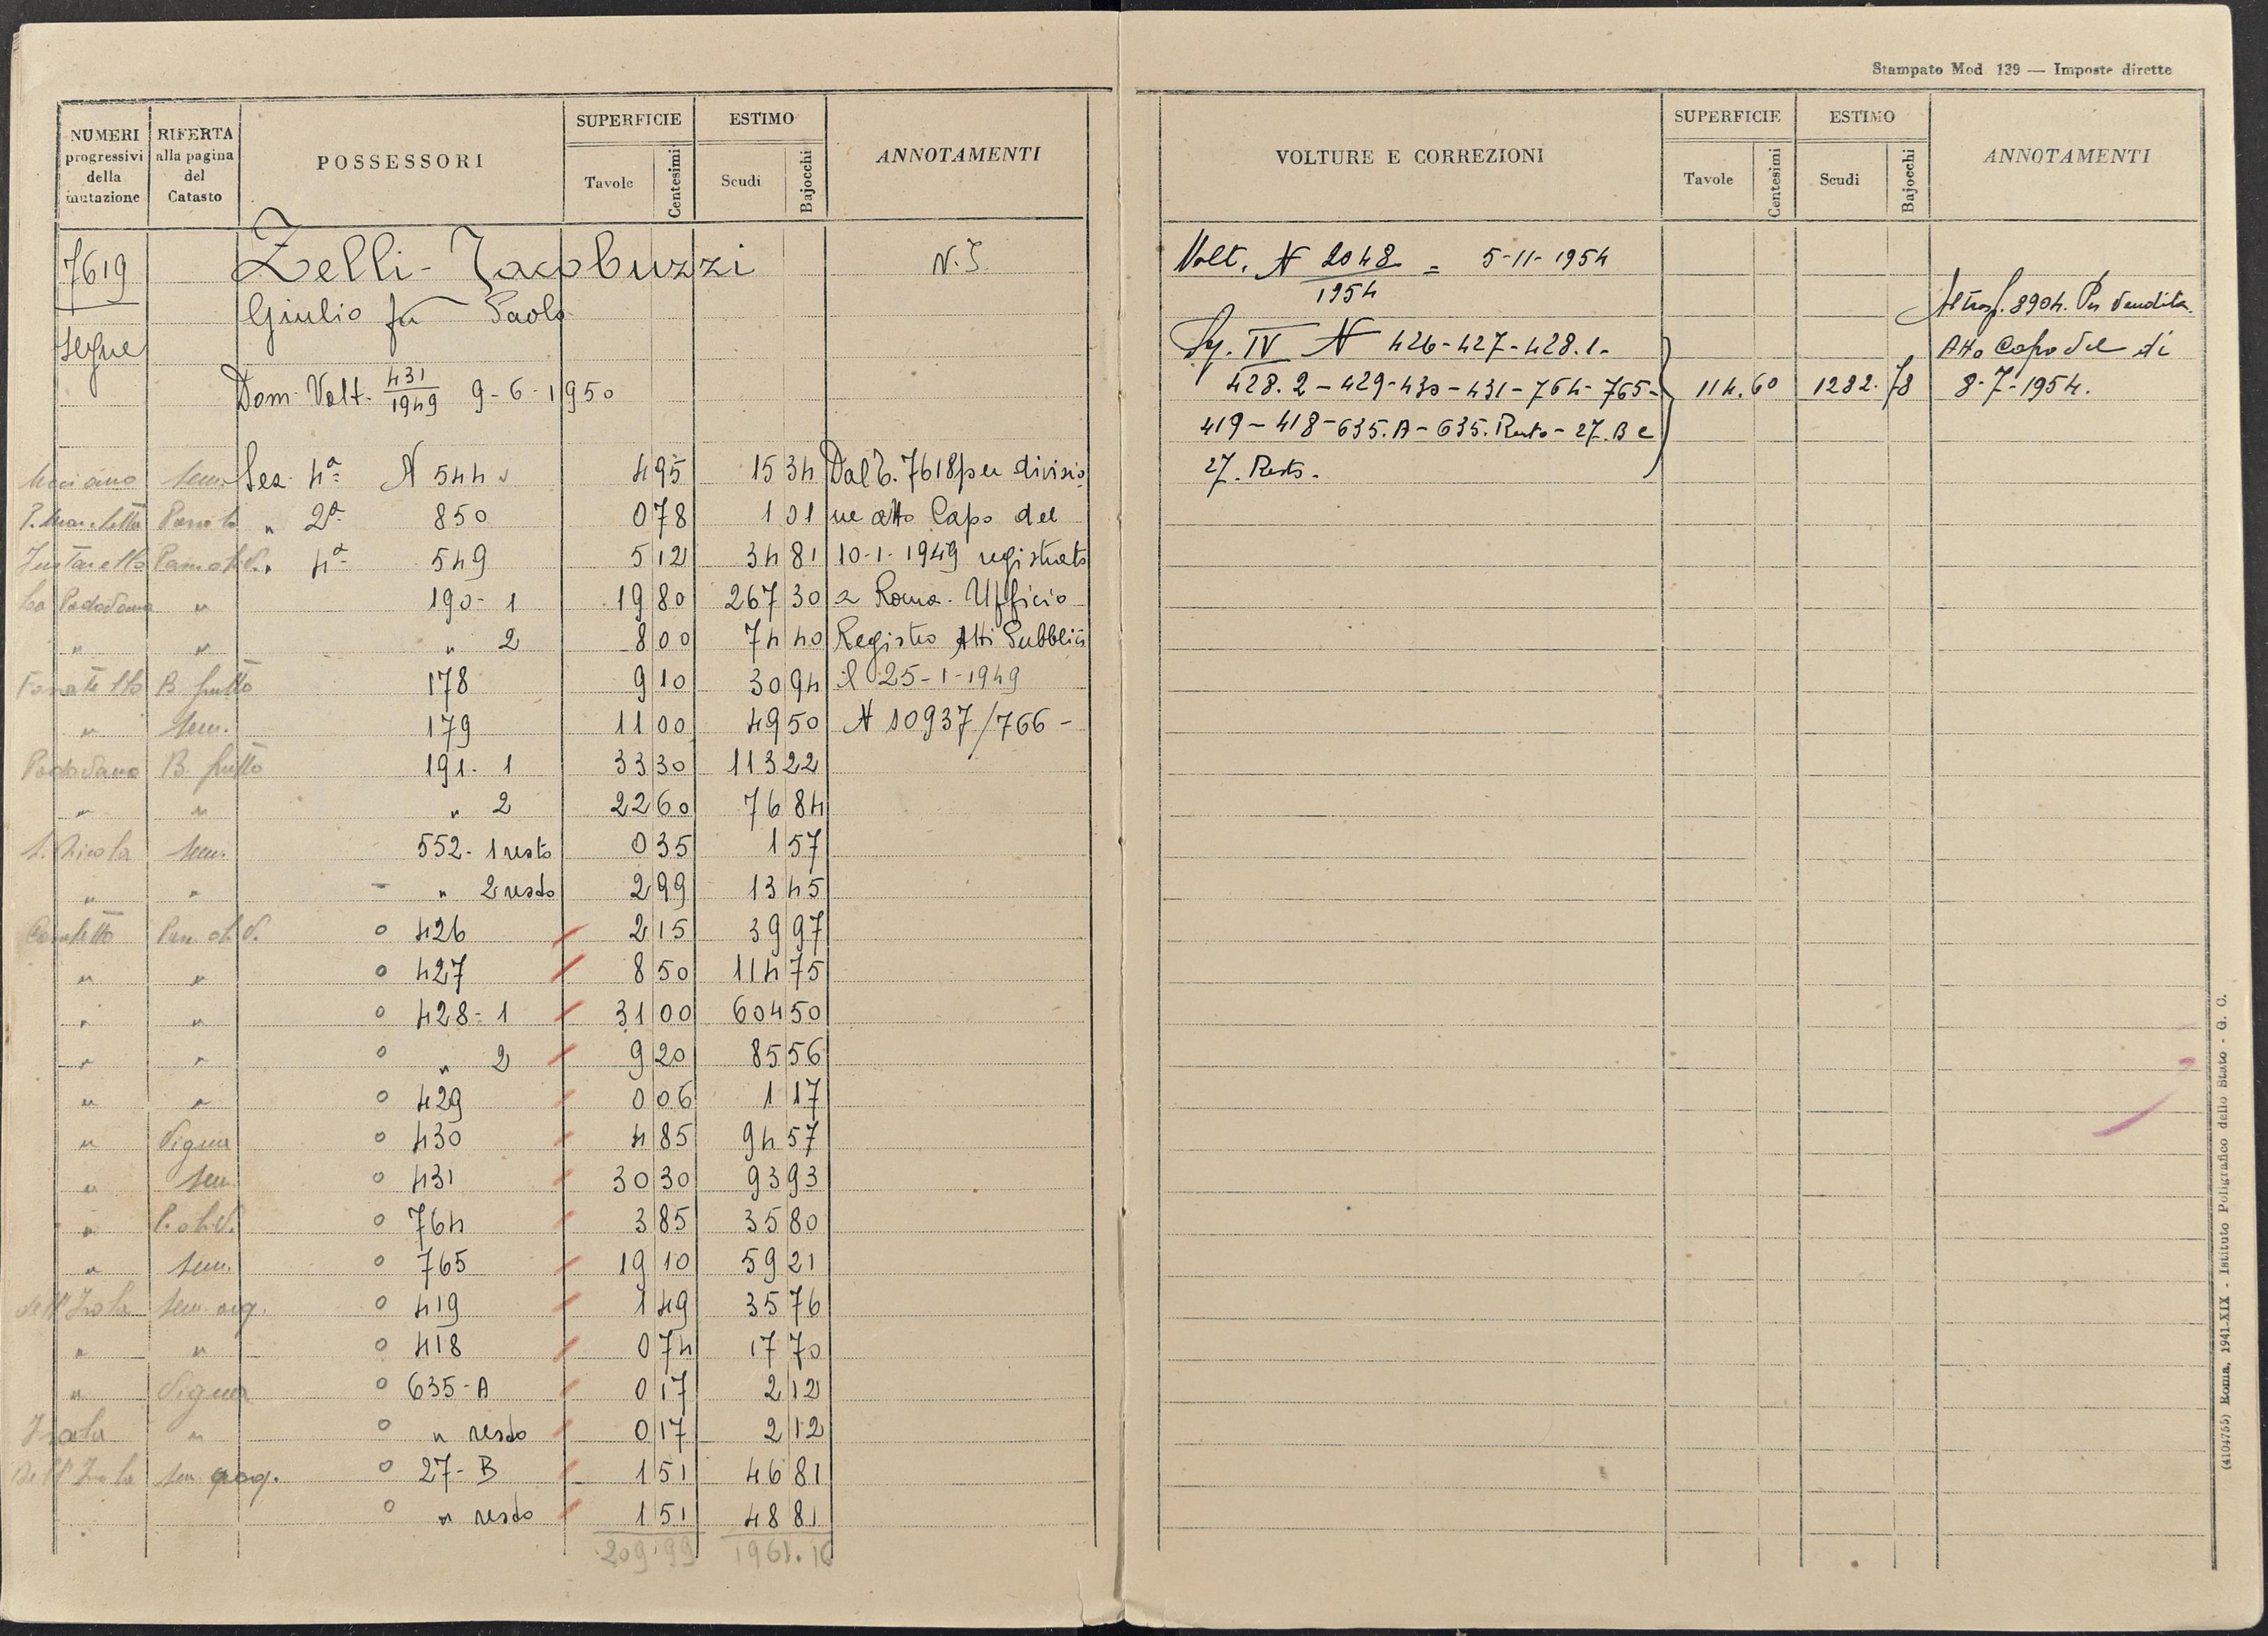 NUMERI progressivi della mutazione
RIFERTA alla pagina del Catasto
POSSESSORI
SUPERFICIE
Tavole
Centesimi
ESTIMO
Scudi
Bajocchi
ANNOTAMENTI
7619 Zelli-Jacobuzzi
Giulio fu Paolo
segue
Dom. Volt. 431/1949 9-6-1950
sem. Sez. 4ª N 544 4 95 15 34 Dal C. 7618 per divisio
" 2ª 850 0 78 1 01 ne atto Capo del
4ª 549 5 12 34 81 10-1-1949 registrato
190-1 19 80 267 30 a Roma. Ufficio
" " " 2 8 00 74 40 Registro Atti Pubblici
B. frutto 178 9 10 30 94 il 25-1-1949
" sem. 179 11 00 49 50 N 10937/766-
B. frutto 191-1 33 30 113 22
" " " 2 22 60 76 84
S. Nicola sem. 552-1 resto 0 35 1 57
" " " 2 resto 2 99 13 45
° 426 2 15 39 97
" " ° 427 8 50 114 75
" " ° 428-1 31 00 604 50
" " ° " 2 9 20 85 56
" " ° 429 0 06 1 17
" Vigna ° 430 4 85 94 57
" sem ° 431 30 30 93 93
" ° 764 3 85 35 80
" sem. ° 765 19 10 59 21
dell'Isola sem. ° 419 1 49 35 76
" " ° 418 0 74 17 70
" Vigna ° 635-A 0 17 2 12
Isola " ° " resto 0 17 2 12
Dell'Isola sem ° 27-B 1 51 46 81
° " resto 1 51 48 81
209.99 1961.16
N.I.
Stampato Mod 139 — Imposte dirette
VOLTURE E CORREZIONI
SUPERFICIE
Tavole
Centesimi
ESTIMO
Scudi
Bajocchi
ANNOTAMENTI
Volt. N 2048/1954 = 5-11-1954
IV N 426-427-428.1-
428.2-429-430-431-764-765-
419-418-635.A-635.Resto-27.B e
27.Resto.
114.60 1282.78
8904. Per vendita.
Atto Capo del dì
8-7-1954.
(4104755) Roma, 1941-XIX - Istituto Poligrafico dello Stato - G. C.